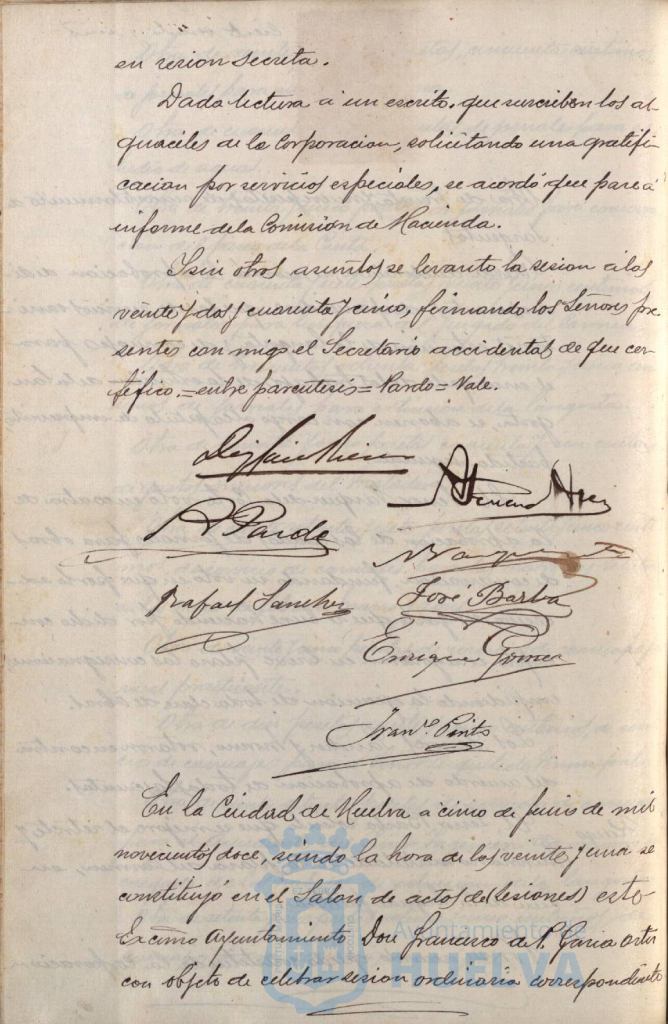 en sesion secreta.
Dada lectura á un escrito, que suscriben los al-
guaciles de la Corporacion, solicitando una gratifi-
cacion por servicios especiales, se acordó que pase á
informe de la Comisión de Hacienda.
Y sin otros asuntos se levantó la sesion á las
veinte y dos y cuarenta y cinco, firmando los Señores pre-
sentes con migo el Secretario accidental de que cer-
tifico.=entre parentesis=Pardo=Vale.
A Pardo
Rafael Sanchez
José Barba
Enrique Gomez
Franco. Pinto
En la Ciudad de Huelva a cinco de junio de mil
novecientos doce, siendo la hora de las veinte y una se
constituyó en el Salon de actos de (sesiones) este
Excmo Ayuntamiento Don Francisco de P. Garcia
con objeto de celebrar sesion ordinaria correspondiente
Ayuntamiento
HUELVA